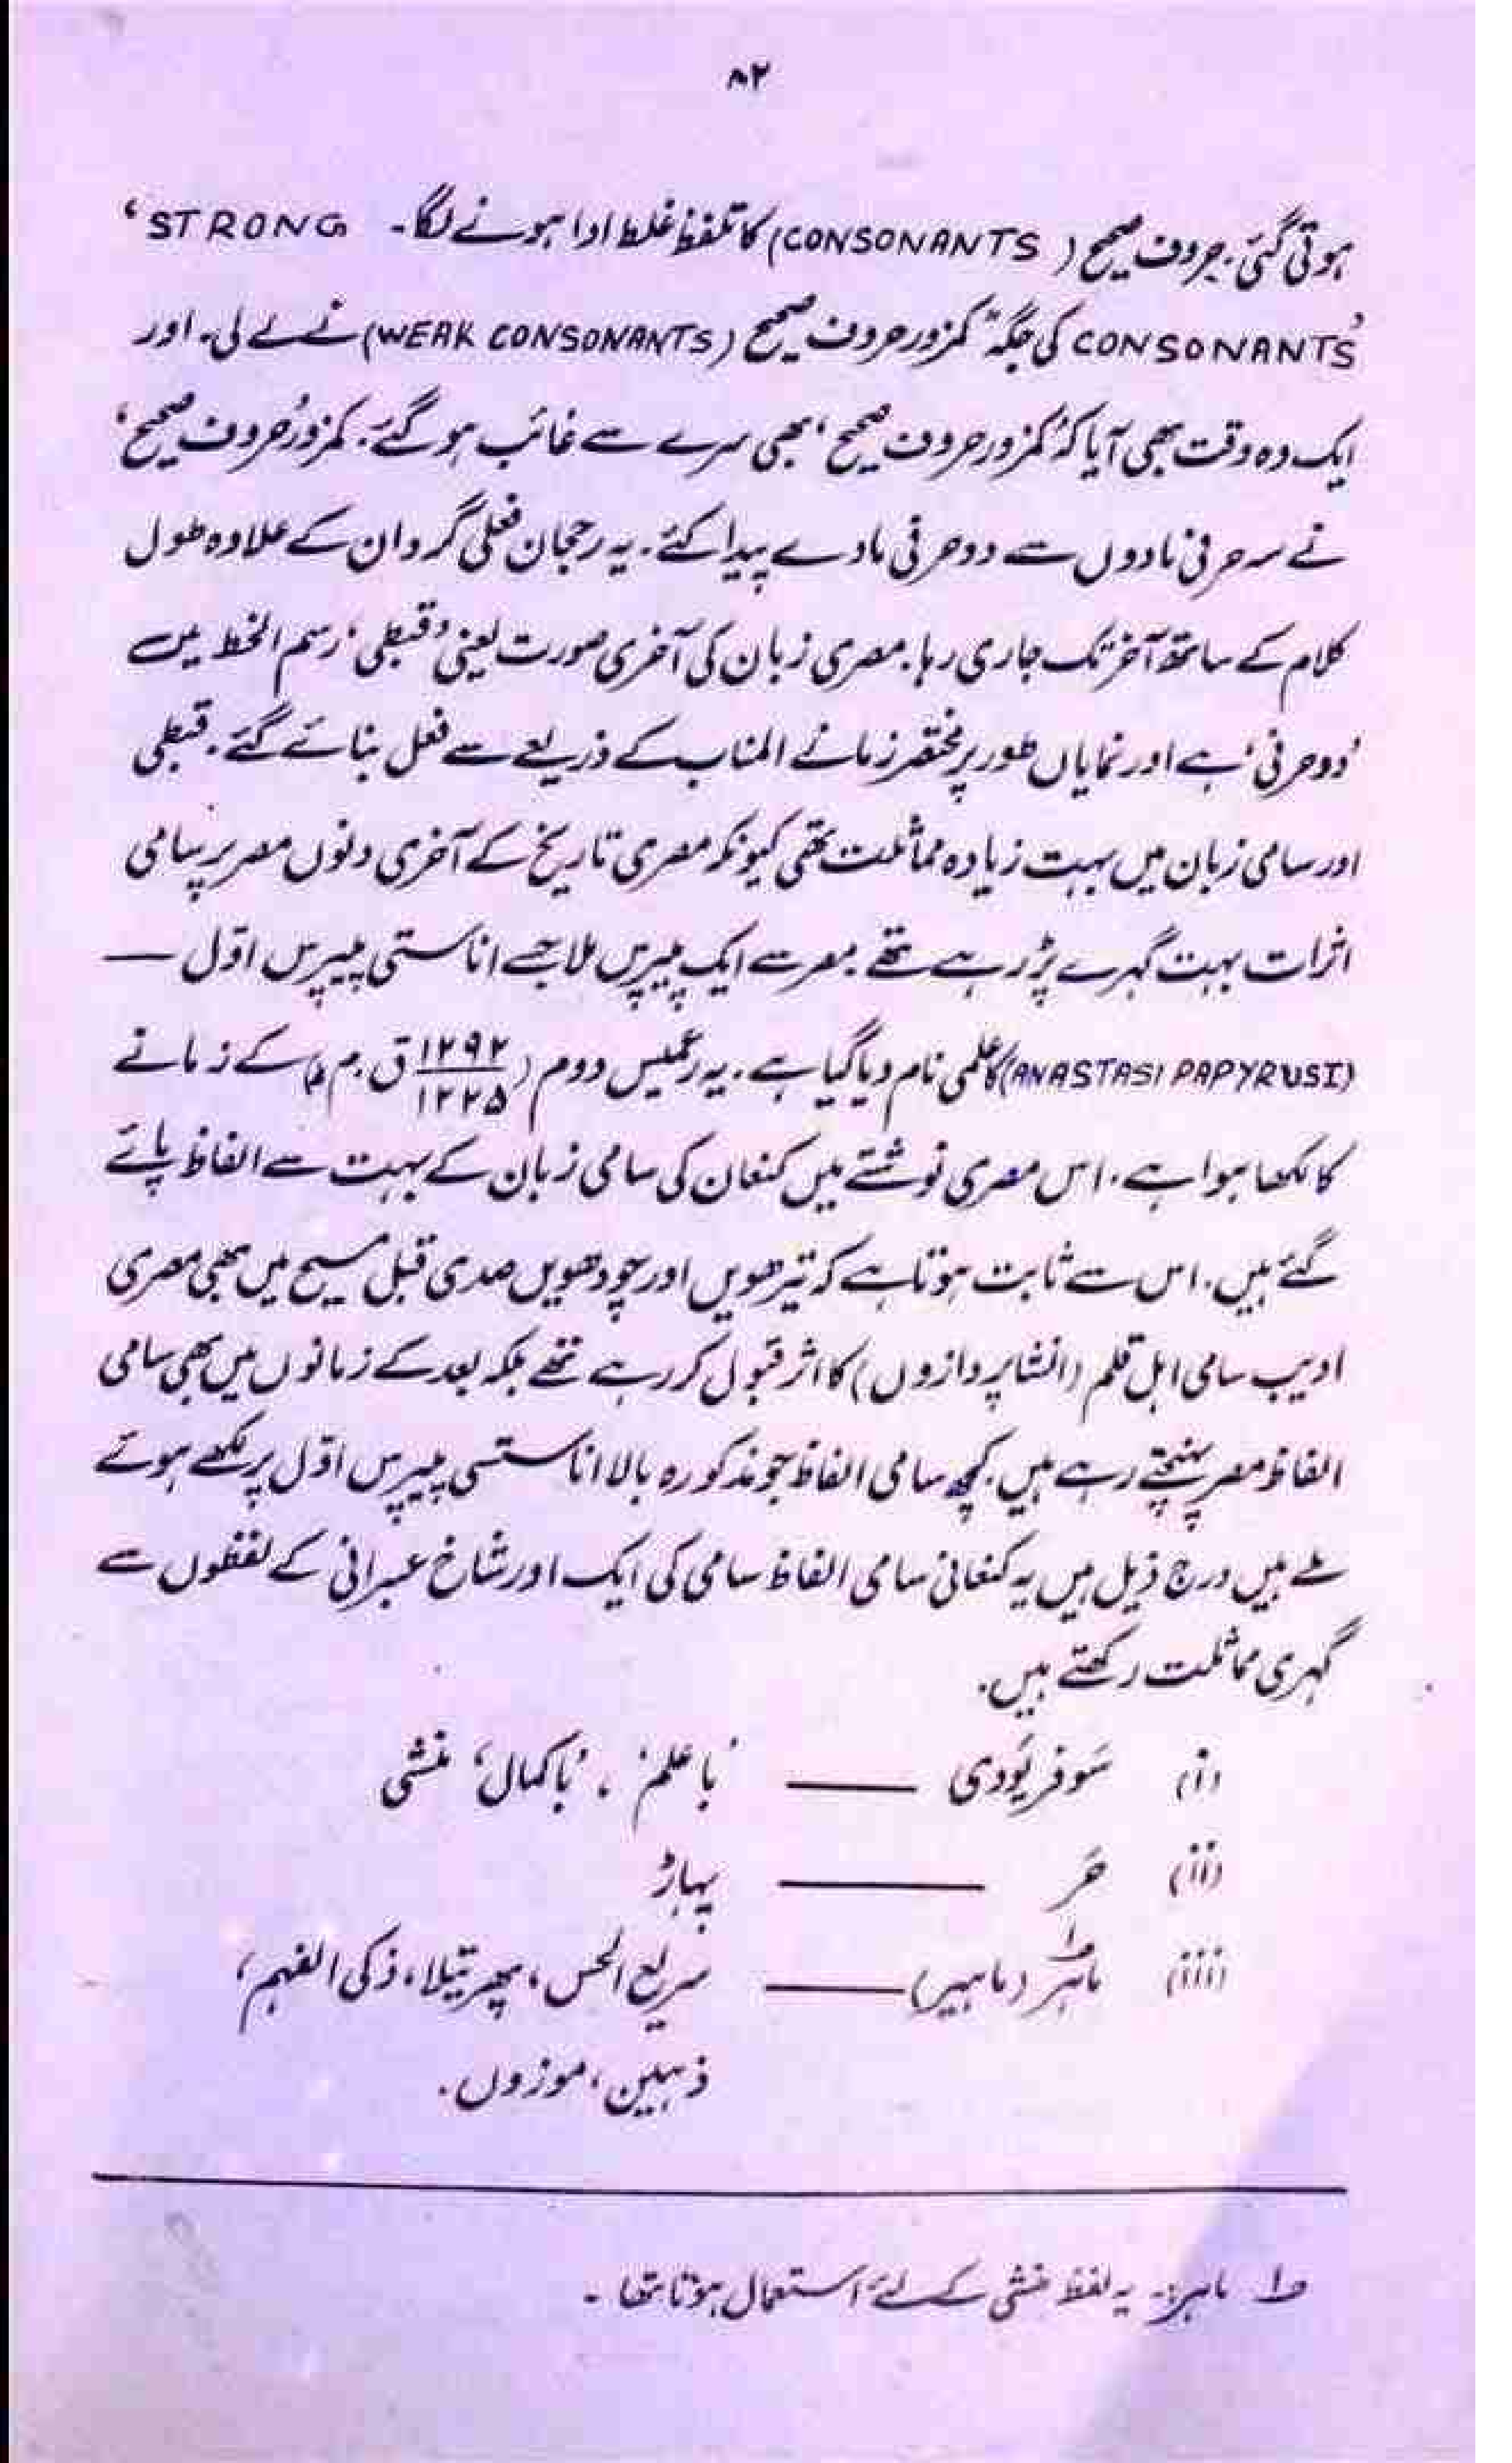 ۸۲
ہوتی گئی۔ حروف صحیح (CONSONANTS) کا تلفظ غلط ادا ہونے لگا۔ ‘STRONG
CONSONANTS’ کی جگہ ”کمزور حروف صحیح (WEAK CONSONANTS) نے لے لی۔ اور
ایک وہ وقت بھی آیا کہ ’کمزور حروف صحیح‘ بھی سرے سے غائب ہوگئے۔ کمزور ’حروف صحیح‘
نے سہ حرفی مادوں سے دو حرفی مادے پیدا کئے۔ یہ رجحان فعلی گردان کے علاوہ طول
کلام کے ساتھ آخر تک جاری رہا۔ مصری زبان کی آخری صورت یعنی ’قبطی‘ رسم الخط میں
’دو حرفی‘ ہے اور نمایاں طور پر مختصر زمانے المناب کے ذریعے سے فعل بنائے گئے۔ قبطی
اور سامی زبان میں بہت زیادہ مماثلت تھی کیونکہ مصری تاریخ کے آخری دنوں مصر پر سامی
اثرات بہت گہرے پڑ رہے تھے۔ مصر سے ایک پیپرس ملا جسے اناستی پیپرس اوّل —
(ANASTASI PAPYRUSI) کا علمی نام دیا گیا ہے۔ یہ رعمیس دوم (۱۲۹۲/۱۲۲۵ ق۔م) کے زمانے
کا لکھا ہوا ہے۔ اس مصری نوشتے میں کنعان کی سامی زبان کے بہت سے الفاظ پائے
گئے ہیں۔ اس سے ثابت ہوتا ہے کہ تیرھویں اور چودھویں صدی قبل مسیح میں بھی مصری
ادیب سامی اہل قلم (انشا پردازوں) کا اثر قبول کر رہے تھے بلکہ بعد کے زمانوں میں بھی سامی
الفاظ مصر پہنچتے رہے ہیں۔ کچھ سامی الفاظ جو مذکورہ بالا اناستسی پیپرس اوّل پر لکھے ہوئے
ملے ہیں درج ذیل ہیں یہ کنعانی سامی الفاظ سامی کی ایک اور شاخ عبرانی کے لفظوں سے
گہری مماثلت رکھتے ہیں۔
(i) سَوفر یَودی —— ’با علم‘ ۔ ’باکمال‘ منشی
(ii) حَر —— پہاڑ
(iii) ماہَر؂۱ (ماہیر) —— سریع الحس، پھرتیلا، ذکی الفہم،
ذہین، موزوں۔
؂۱ ماہر:۔ یہ لفظ منشی کے لئے استعمال ہوتا تھا ۔